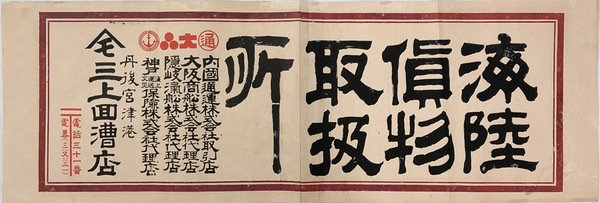 海陸
貨物
取扱
所
通
大
内國通運株式会社取引店
大阪商船株式会社代理店
隠岐汽船株式会社代理店
保險株式会社代理店
丹後宮津港
三上回漕店
電話三十一番